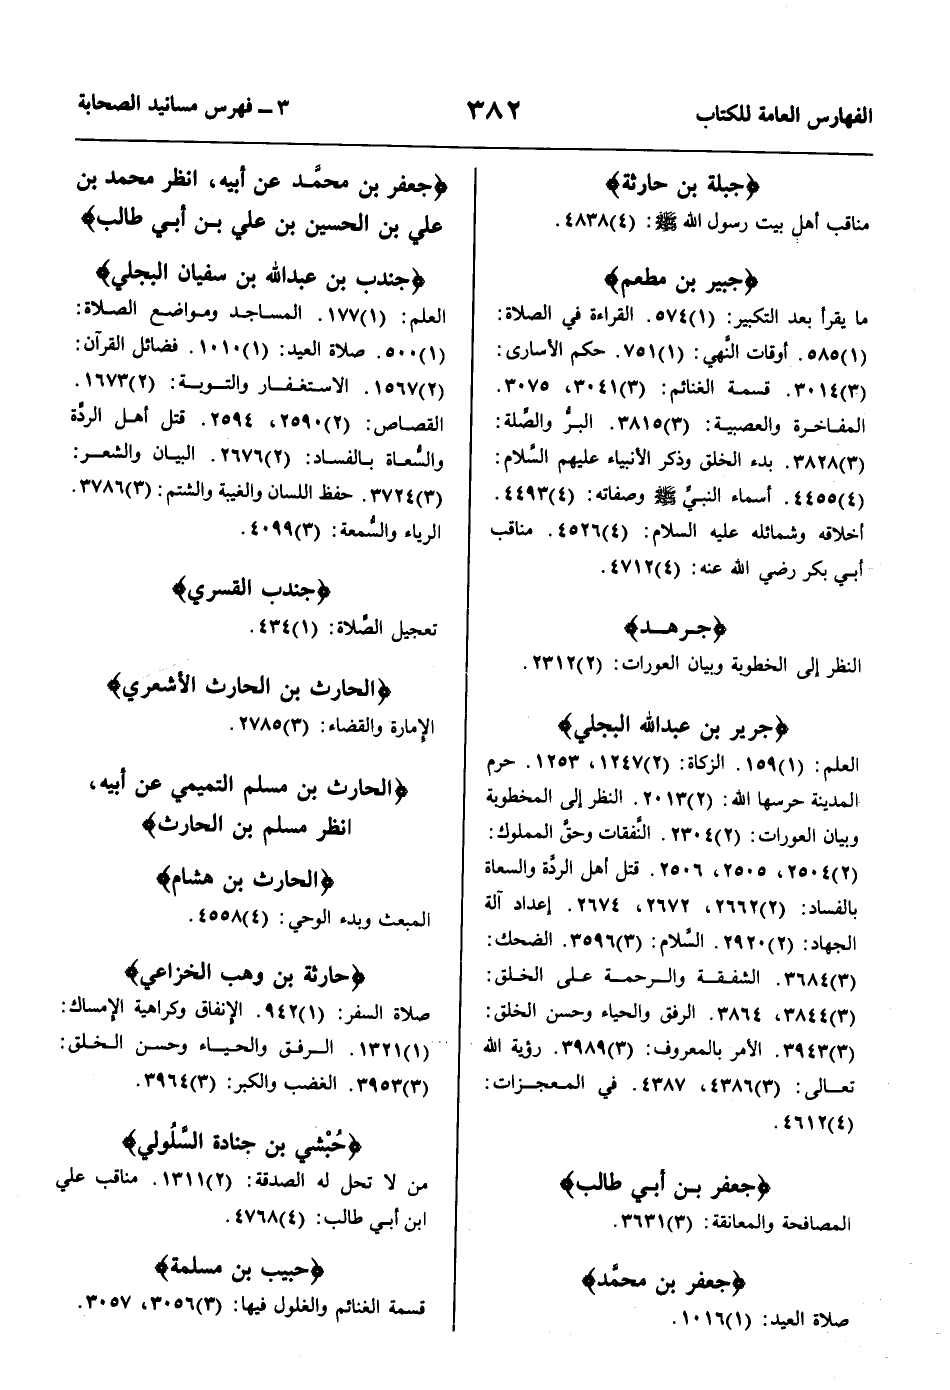 الفهارس العامة للكتاب
٣٨٢
٣ ـ فهرس مسانيد الصحابة
﴿جبلة بن حارثة﴾
مناقب أهل بيت رسول الله ﷺ: (٤)٤٨٣٨.
﴿جبير بن مطعم﴾
ما يقرأ بعد التكبير: (١)٥٧٤. القراءة في الصلاة:
(١)٥٨٥. أوقات النَّهي: (١)٧٥١. حكم الأسارى:
(٣)٣٠١٤. قسمة الغنائم: (٣)٣٠٤١، ٣٠٧٥.
المفاخرة والعصبية: (٣)٣٨١٥. البرُّ والصِّلة:
(٣)٣٨٢٨. بدء الخلق وذكر الأنبياء عليهم السَّلام:
(٤)٤٤٥٥. أسماء النبيِّ ﷺ وصفاته: (٤)٤٤٩٣.
أخلاقه وشمائله عليه السلام: (٤)٤٥٢٦. مناقب
أبي بكر رضي الله عنه: (٤)٤٧١٢.
﴿جرهد﴾
النظر إلى الخطوبة وبيان العورات: (٢)٢٣١٢.
﴿جرير بن عبدالله البجلي﴾
العلم: (١)١٥٩. الزكاة: (٢)١٢٤٧، ١٢٥٣. حرم
المدينة حرسها الله: (٢)٢٠١٣. النظر إلى المخطوبة
وبيان العورات: (٢)٢٣٠٤. النَّفقات وحقَّ المملوك:
(٢)٢٥٠٤، ٢٥٠٥، ٢٥٠٦. قتل أهل الردَّة والسعاة
بالفساد: (٢)٢٦٦٢، ٢٦٧٢، ٢٦٧٤. إعداد آلة
الجهاد: (٢)٢٩٢٠. السَّلام: (٣)٣٥٩٦. الضحك:
(٣)٣٦٨٤. الشفقة والرحمة على الخلق:
(٣)٣٨٤٤، ٣٨٦٤. الرفق والحياء وحسن الخلق:
(٣)٣٩٤٣. الأمر بالمعروف: (٣)٣٩٨٩. رؤية الله
تعالى: (٣)٤٣٨٦، ٤٣٨٧. في المعجزات:
(٤)٤٦١٢.
﴿جعفر بن أبي طالب﴾
المصافحة والمعانقة: (٣)٣٦٣١.
﴿جعفر بن محمَّد﴾
صلاة العيد: (١)١٠١٦.
﴿جعفر بن محمَّد عن أبيه، انظر محمد بن
علي بن الحسين بن علي بن أبي طالب﴾
﴿جندب بن عبدالله بن سفيان البجلي﴾
العلم: (١)١٧٧. المساجد ومواضع الصلاة:
(١)٥٠٠. صلاة العيد: (١)١٠١٠. فضائل القرآن:
(٢)١٥٦٧. الاستغفار والتوبة: (٢)١٦٧٣.
القصاص: (٢)٢٥٩٠، ٢٥٩٤. قتل أهل الردَّة
والسُّعاة بالفساد: (٢)٢٦٧٦. البيان والشعر:
(٣)٣٧٢٤. حفظ اللسان والغيبة والشتم: (٣)٣٧٨٦.
الرياء والسُّمعة: (٣)٤٠٩٩.
﴿جندب القسري﴾
تعجيل الصَّلاة: (١)٤٣٤.
﴿الحارث بن الحارث الأشعري﴾
الإمارة والقضاء: (٣)٢٧٨٥.
﴿الحارث بن مسلم التميمي عن أبيه،
انظر مسلم بن الحارث﴾
﴿الحارث بن هشام﴾
المبعث وبدء الوحي: (٤)٤٥٥٨.
﴿حارثة بن وهب الخزاعي﴾
صلاة السفر: (١)٩٤٢. الإنفاق وكراهية الإمساك:
(١)١٣٢١. الرفق والحياء وحسن الخلق:
(٣)٣٩٥٣. الغضب والكبر: (٣)٣٩٦٤.
﴿حُبْشي بن جنادة السَّلُولي﴾
من لا تحل له الصدقة: (٢)١٣١١. مناقب علي
ابن أبي طالب: (٤)٤٧٦٨.
﴿حبيب بن مسلمة﴾
قسمة الغنائم والغلول فيها: (٣)٣٠٥٦، ٣٠٥٧.